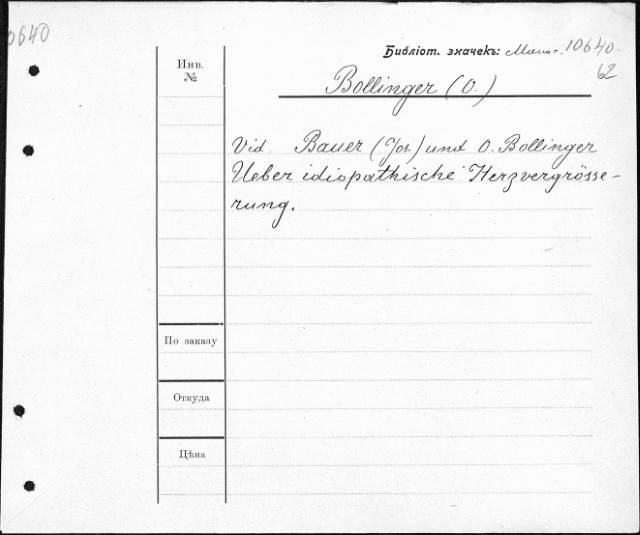 0640
Библіот. значекъ: 10640.
62
Инв.
№
Bollinger (O.)
Vid. Bauer (Jos.) und O. Bollinger
Ueber idiopathische Herzvergrösse-
rung.
По заказу
Откуда
Цѣна